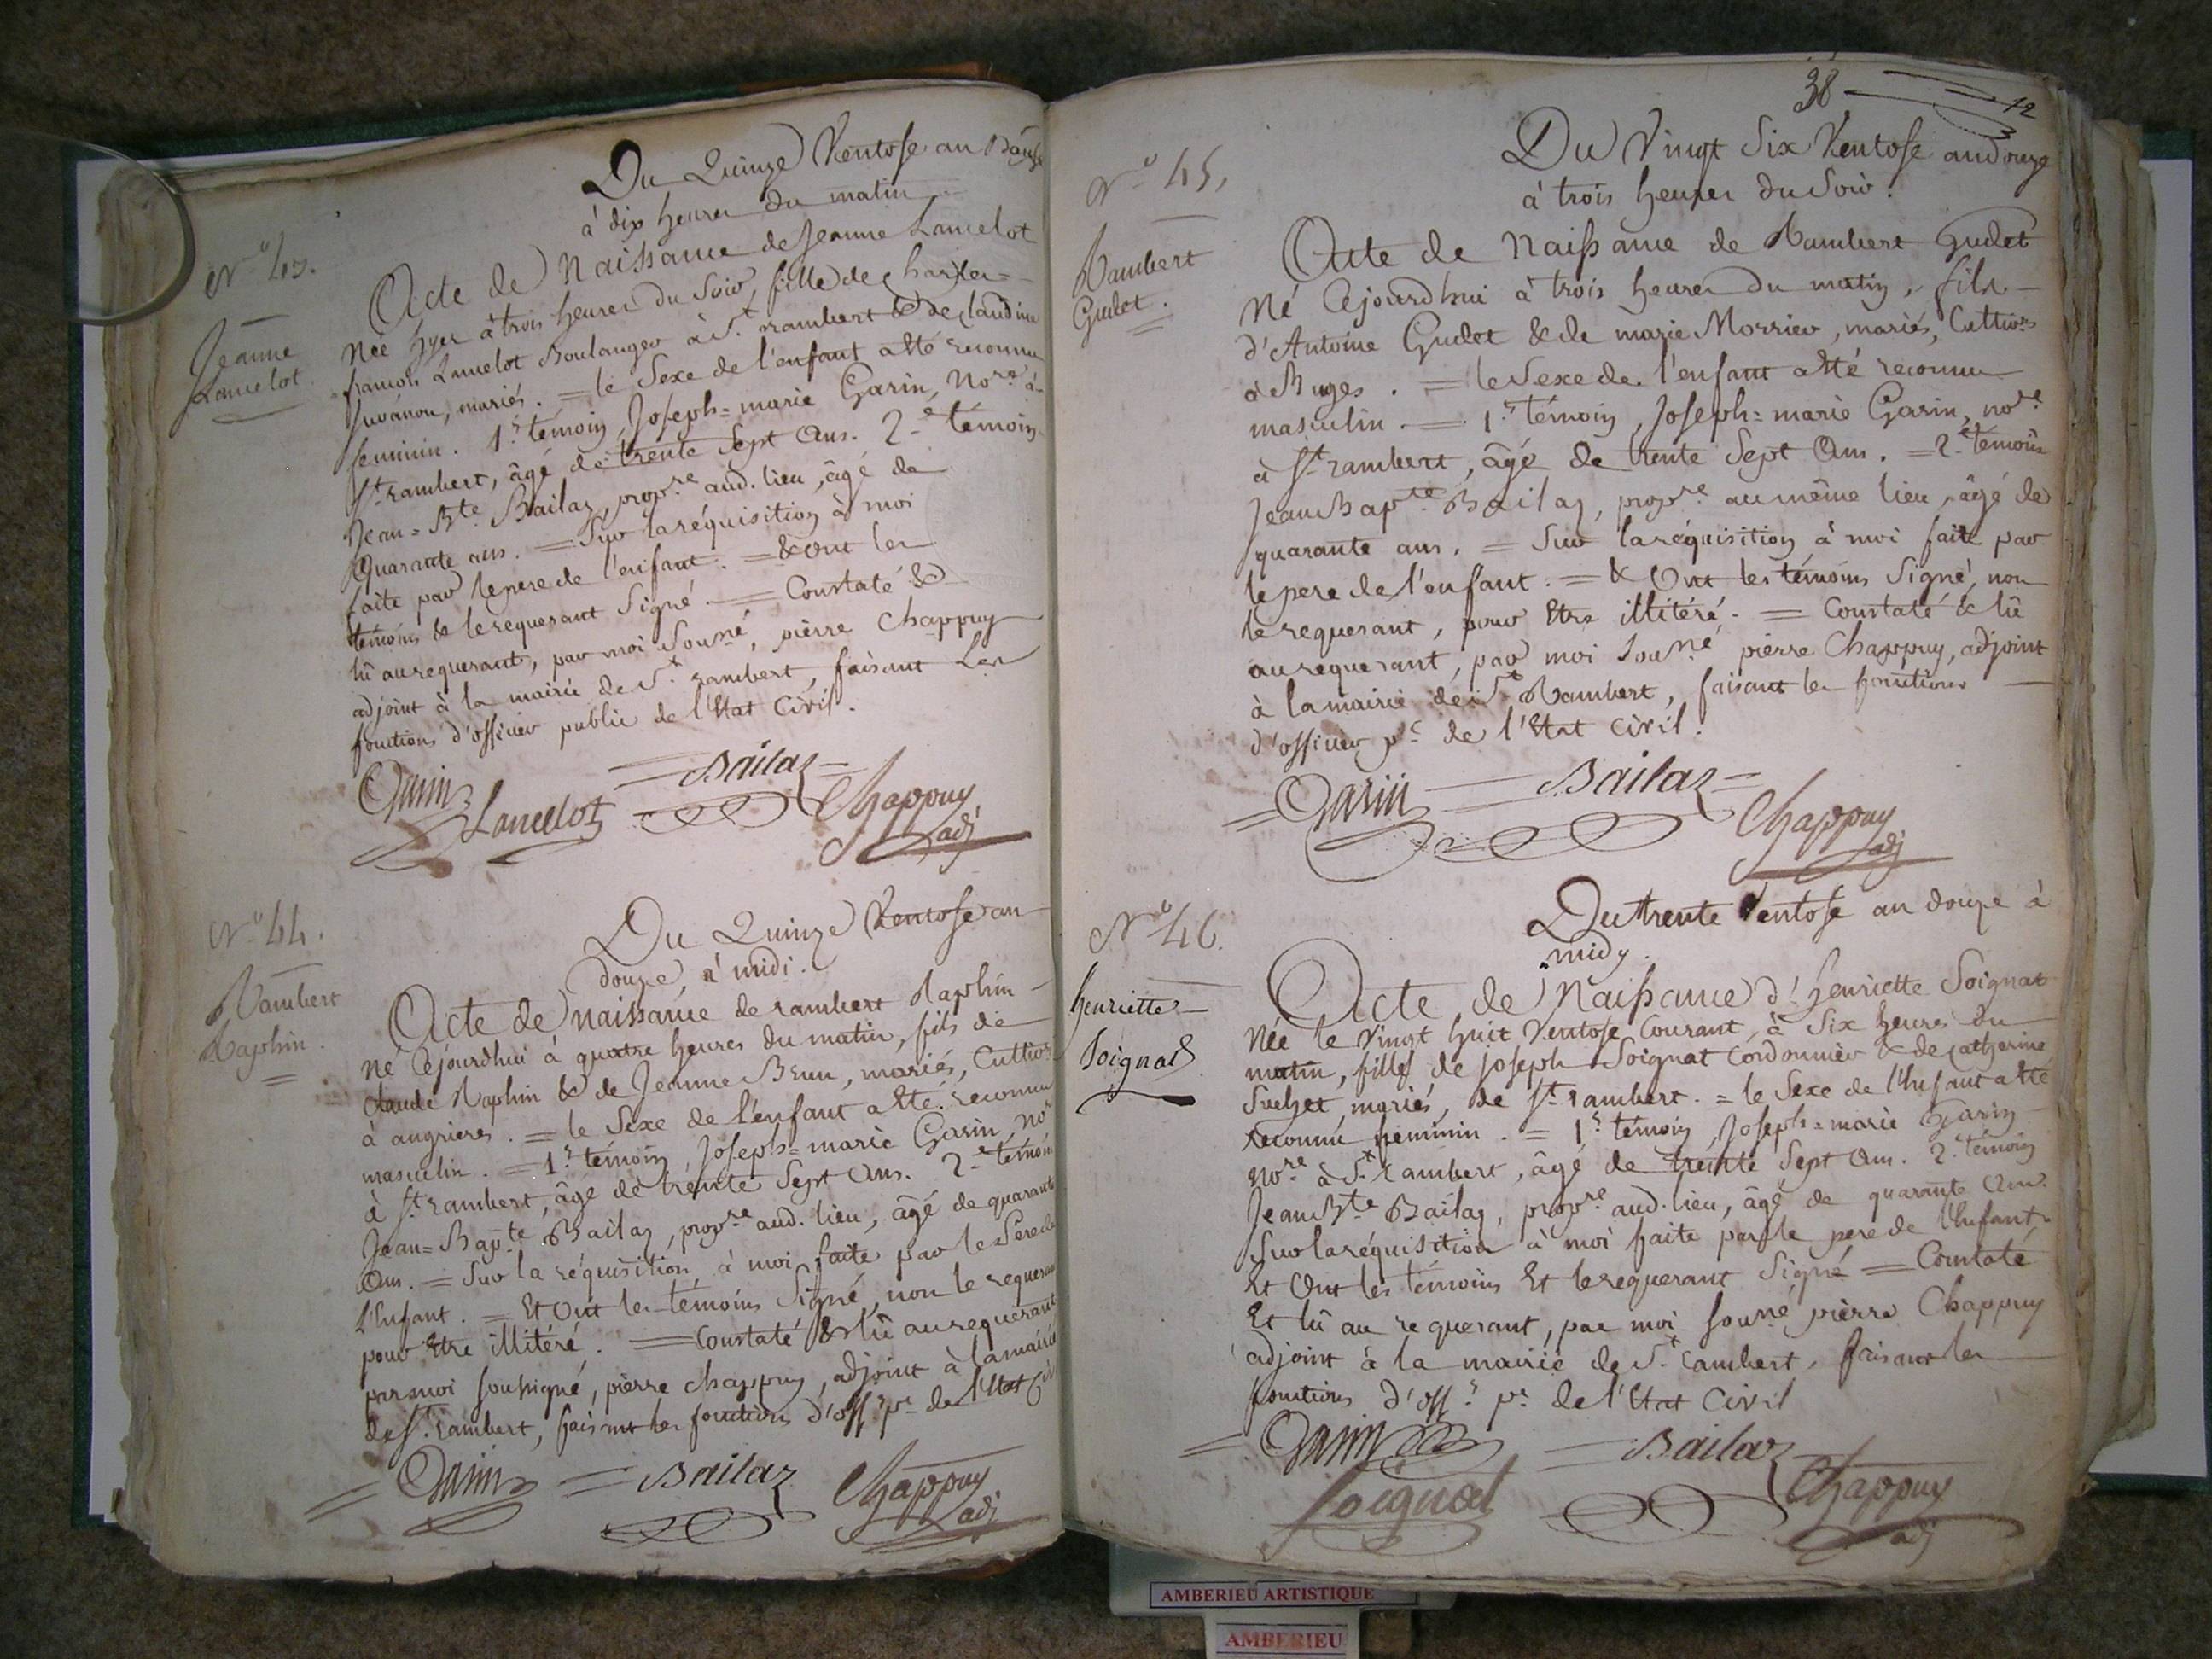 Du Quinze Ventose an Douze
à dix heures du matin
N.º 43.
Jeanne
Lancelot.
Acte de Naissance de Jeanne Lancelot
Née hyer à trois heures du Soir, fille de Charles=
françois Lancelot Boulanger à S.t rambert & de Claudine
Juvanon, mariés. = le Sexe de l'enfant a été reconnu
feminin. 1.r témoin, Joseph=marie Garin, No.re à
S.t rambert, âgé de trente Sept Ans. 2.e témoin
Jean=B.te Bailaz, prop.re aud. lieu, âgé de
Quarante ans. = Sur la réquisition à moi
faite par le pere de l'enfant. = & ont les
témoins & le requerant Signé. = Constaté &
lû au requerant, par moi Sou.né, pièrre Chappuy
adjoint à la mairie de S.t rambert, faisant Les
fonctions d'officier public de l'Etat Civil.
Garin Lancelot = Bailaz = Chappuy
adj
N.º 44.
Rambert
Raphin.
Du Quinze Ventose an
douze, à midi.
Acte de naissance de rambert Raphin
né Cejourdhui à quatre heures du matin, fils de
Claude Raphin & de Jeanne Brun, mariés, Cultiv.rs
à angrieres. = le Sexe de l'enfant a été reconnu
masculin. = 1.r témoin, Joseph=marie Garin, no.re
à S.t rambert, âgé de trente Sept Ans. 2.e témoin
Jean=Bap.te Bailaz, prop.re aud. lieu, âgé de quarante
Ans. = Sur la réquisition à moi faite par le Pere de
l'Enfant. = Et Ont les témoins Signé, non le requerant
pour Etre illitéré. = Constaté & lû au requerant
par moi soussigné, pièrre Chappuy, adjoint à la mairie
de S.t rambert, faisant les fonctions d'off.r p.c de l'Etat Civil
= Garin = Bailaz Chappuy
adj
38
12
N.º 45.
Rambert
Gudet.
Du Vingt Six Ventose an douze
à trois heures du Soir.
Acte de Naissance de Rambert Gudet
Né Cejourdhui à trois heures du matin, fils
d'Antoine Gudet & de marie Morrier, mariés, Cultiv.rs
à Buges. = le Sexe de l'enfant a été reconnu
masculin. = 1.r témoin, Joseph=marie Garin, no.re
à S.t rambert, âgé de trente Sept Ans. = 2.e témoin
Jean Bap.te Bailaz, prop.re au même lieu, âgé de
quarante ans. = Sur la réquisition à moi faite par
le pere de l'enfant. = & Ont les témoins Signé, non
le requerant, pour Etre illitéré. = Constaté & lû
au requerant, par moi Sou.né pièrre Chappuy, adjoint
à la mairie de S.t Rambert, faisant les fonctions
d'officier p.c de l'Etat Civil.
= Garin = Bailaz =
Chappuy
adj
N.º 46.
henriette
Soignat
Du trente Ventose an douze à
midy.
Acte de Naissance d'henriette Soignat
Née le Vingt huit Ventose Courant, à Six heures du
matin, fille de Joseph Soignat Cordonnier & de Catherine
mariés, de S.t rambert. = le Sexe de l'Enfant a été
reconnu feminin. = 1.r témoin, Joseph=marie Garin
no.re à S.t rambert, âgé de trente Sept Ans. 2.e témoin
Jean B.te Bailaz, prop.re aud. lieu, âgé de quarante Ans.
Sur la réquisition à moi faite par le pere de l'Enfant
Et Ont les témoins Et le requerant Signé = Constaté
Et lû au requerant, par moi Sou.né pièrre Chappuy
adjoint à la mairie de S.t rambert, faisant les
fonctions d'off.r p.c de l'Etat Civil
= Garin = Bailaz
Soignat Chappuy
adj
AMBERIEU ARTISTIQUE
AMBERIEU